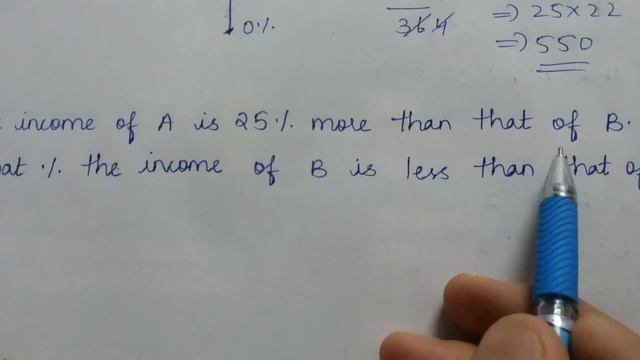 ⇒ 25 × 22
0%
⇒ 550
income of A is 25% more than that of B.
at % the income of B is less than that of